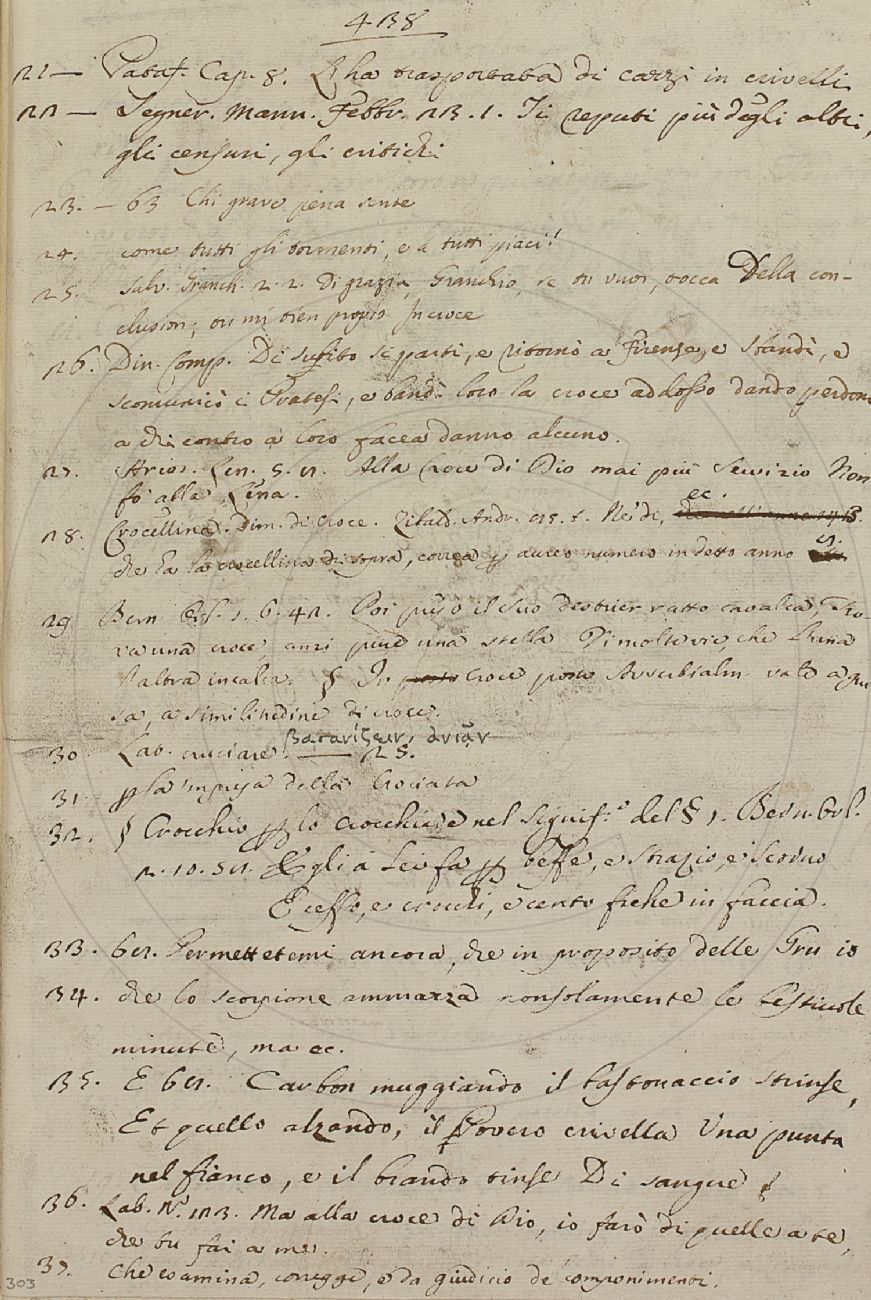 438
21 — Pataf. Cap. 8. L'ha trasportata di carzi in crivelli
22 — Segner. Mann. Febbr. 23. 1. Ti reputi più degli altri,
gli censuri, gli critichi
23. — 63 Chi grave pena sente
24. come tutti gli tormenti, e a tutti piaci!
25. Salv. Granch. 2. 2. Di grazia, Granchio, se tu vuoi, tocca Della con-
clusion; tu mi tien proprio In croce
26. Din. Comp. Di subito si partì, e ritornò a Firenze, e sbandì, e
scomunicò i Pratesi, e bandì loro la croce addosso dando perdono
a chi contro a loro facea danno alcuno.
27. Arios. Len. 5. 11. Alla Croce di Dio mai più servizio Non
fo alla Lena.
28. Crocellina. Dim. di Croce. Zibald. Andr. Nei dì, ec.
che ha la crocellina di sopra, correa per aureo numero in detto anno
29 Bern. Orl. 1. 6. 42. Poi preso il suo destrier ratto cavalca, Tro-
va una croce anzi pure una stella Di molte vie, che l'una
l'altra incalca. § In croce Avverbialm. vale a gui-
sa, a similitudine di croce.
30. Lat. cruciare βασανίζειν, ἀνιᾶν — 25.
31. per la 'mpresa della Crociata
32. § Crocchio per lo crocchiare nel signif.o del § 1. Bern. Orl.
2. 10. 51. Egli a lei fa per beffe, e strazio, e scorno
E ceffo, e crocchi, e cento fiche in faccia.
33. 61. Permettetemi ancora, che in proposito delle Gru io
34. che lo scorpione ammazza nonsolamente le bestiuole
minute, ma ec.
35. E 61. Carbon muggiando il bastonaccio strinse,
Et quello alzando, il Povero crivella Una punta
nel fianco, e il brando tinse Di sangue §
36. Lab. N.o 123. Ma alla croce di Dio, io farò di quelle a te,
che tu fai a me.
37. Che esamina, corregge, e da giudicio de' componimenti.
303